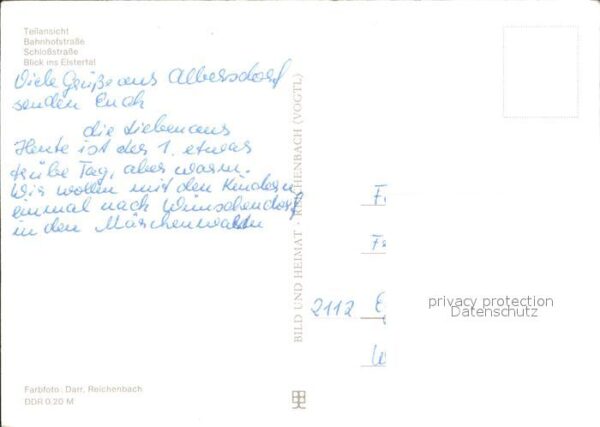 Teilansicht
Bahnhofstraße
Schloßstraße
Blick ins Elstertal
Viele Grüße aus Albersdorf
senden Euch
die Lieben aus
Heute ist der 1. etwas
trübe Tag, aber warm.
Wir wollen mit den Kindern
einmal nach Wünschendorf
in den Märchenwald
BILD UND HEIMAT · REICHENBACH (VOGTL)
2112
privacy protection
Datenschutz
Farbfoto: Darr, Reichenbach
DDR 0.20 M